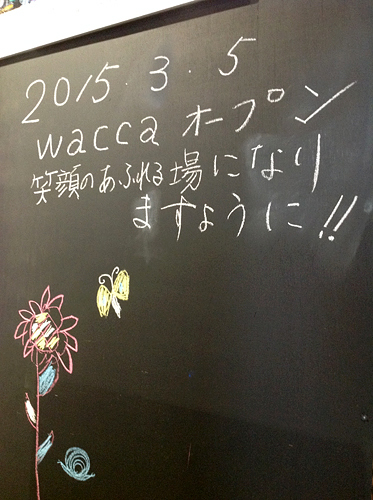 2015.3.5
wacca オープン
笑顔のあふれる場になり
ますように!!